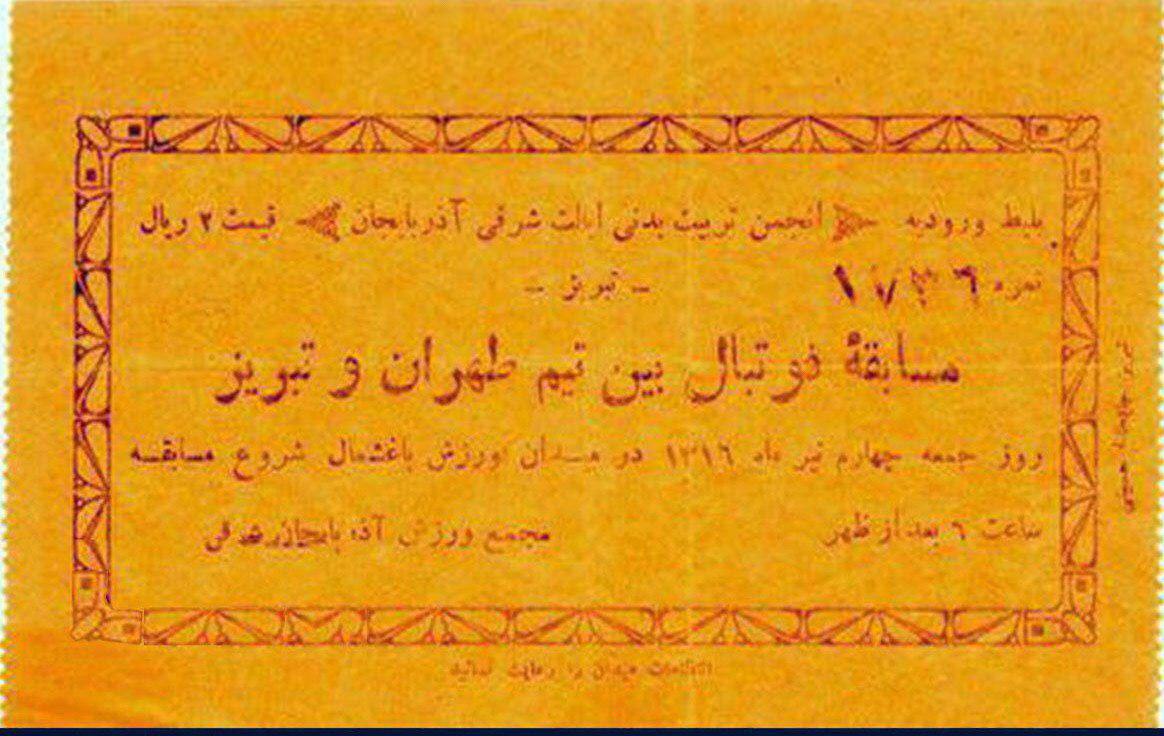 بلیط ورودیه انجمن تربیت بدنی ایالت شرقی آذربایجان قیمت ۲ ریال
نمره ۱۷۳۶
- تبریز -
مسابقهٔ فوتبال بین تیم طهران و تبریز
روز جمعه چهارم تیر ماه ۱۳۱۶ در میدان ورزش باغشمال شروع مسابقه
ساعت ٦ بعد از ظهر
مجمع ورزش آذربایجان شرقی
انتظامات میدان را رعایت نمائید
تبریز چاپخانه